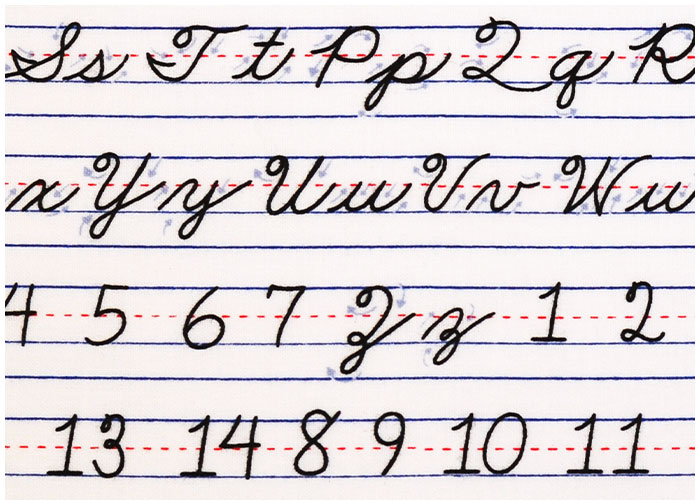 S s T t P p Q q R
x Y y U u V v W w
4 5 6 7 Z z 1 2
13 14 8 9 10 11